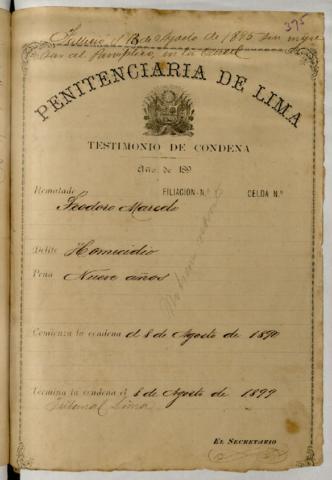 375
Falleció el 13 de Agosto de 1895 sin
en la Carcel
PENITENCIARIA DE LIMA
TESTIMONIO DE CONDENA
Año de 189
Rematado FILIACION N.º CELDA N.º
Teodoro
Delito Homicidio
Pena Nueve años
Comienza la condena el 8 de Agosto de 1890
Termina la condena el 8 de Agosto de 1899
Tribunal Lima
EL SECRETARIO